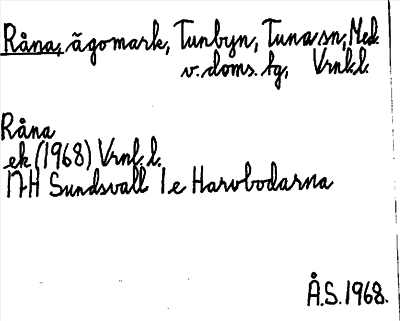 Råna, ägomark, Tunbyn, Tuna sn, Med.
v. doms. tg, Vrnl.l.
Råna
ek (1968) Vrnl.l.
17H Sundsvall 1e Harvbodarna
Å.S. 1968.